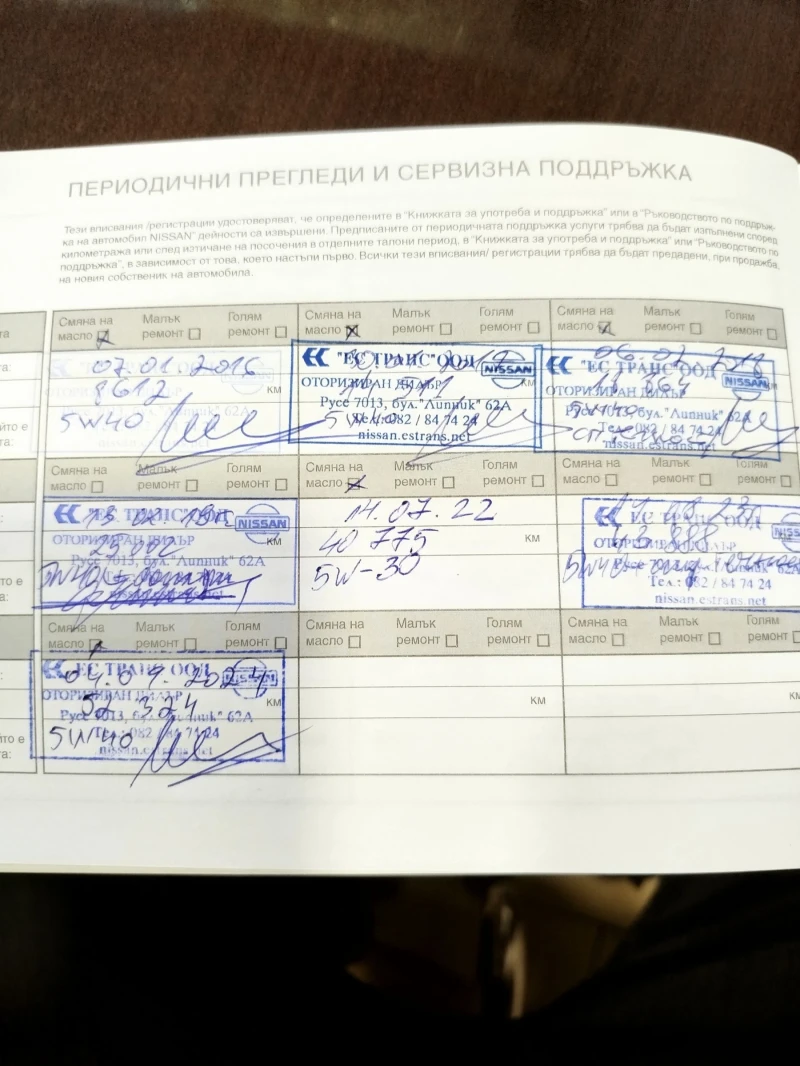 ПЕРИОДИЧНИ ПРЕГЛЕДИ И СЕРВИЗНА ПОДДРЪЖКА
Тези вписвания /регистрации удостоверяват, че определените в "Книжката за употреба и поддръжка" или в "Ръководството по поддръж-
ка на автомобил NISSAN" дейности са извършени. Предписаните от периодичната поддръжка услуги трябва да бъдат изпълнени според
километража или след изтичане на посочения в отделните талони период, в "Книжката за употреба и поддръжка" или "Ръководството по
поддръжка", в зависимост от това, което настъпи първо. Всички тези вписвания/ регистрации трябва да бъдат предадени, при продажба,
на новия собственик на автомобила.
Смяна на масло Малък ремонт Голям ремонт
07.01.2016
8612 км
5W40
Смяна на масло Малък ремонт Голям ремонт
"ЕС ТРАНС"ООД
NISSAN
ОТОРИЗИРАН ДИЛЪР
Русе 7013, бул."Липник" 62А
Тел.: 082 / 84 74 24
nissan.estrans.net
5W40
Смяна на масло Малък ремонт Голям ремонт
"ЕС ТРАНС"ООД
NISSAN
ОТОРИЗИРАН ДИЛЪР
Русе 7013, бул."Липник" 62А
Тел.: 082 / 84 74 24
nissan.estrans.net
5W40
Смяна на масло Малък ремонт Голям ремонт
"ЕС ТРАНС"ООД
NISSAN
ОТОРИЗИРАН ДИЛЪР
км
Русе 7013, бул."Липник" 62А
5W40
Смяна на масло Малък ремонт Голям ремонт
14.07.22
40 775 км
5W-30
Смяна на масло Малък ремонт Голям ремонт
ЕС ТРАНС"ООД
NISSAN
ОТОРИЗИРАН ДИЛЪР
Русе 7013, бул."Липник" 62А
5W40
Тел.: 082 / 84 74 24
nissan.estrans.net
Смяна на масло Малък ремонт Голям ремонт
"ЕС ТРАНС"ООД
NISSAN
ОТОРИЗИРАН ДИЛЪР
52 324 км
Русе 7013, бул."Липник" 62А
5W40
Тел.: 082 / 84 74 24
nissan.estrans.net
Смяна на масло Малък ремонт Голям ремонт
км
Смяна на масло Малък ремонт Голям ремонт
км